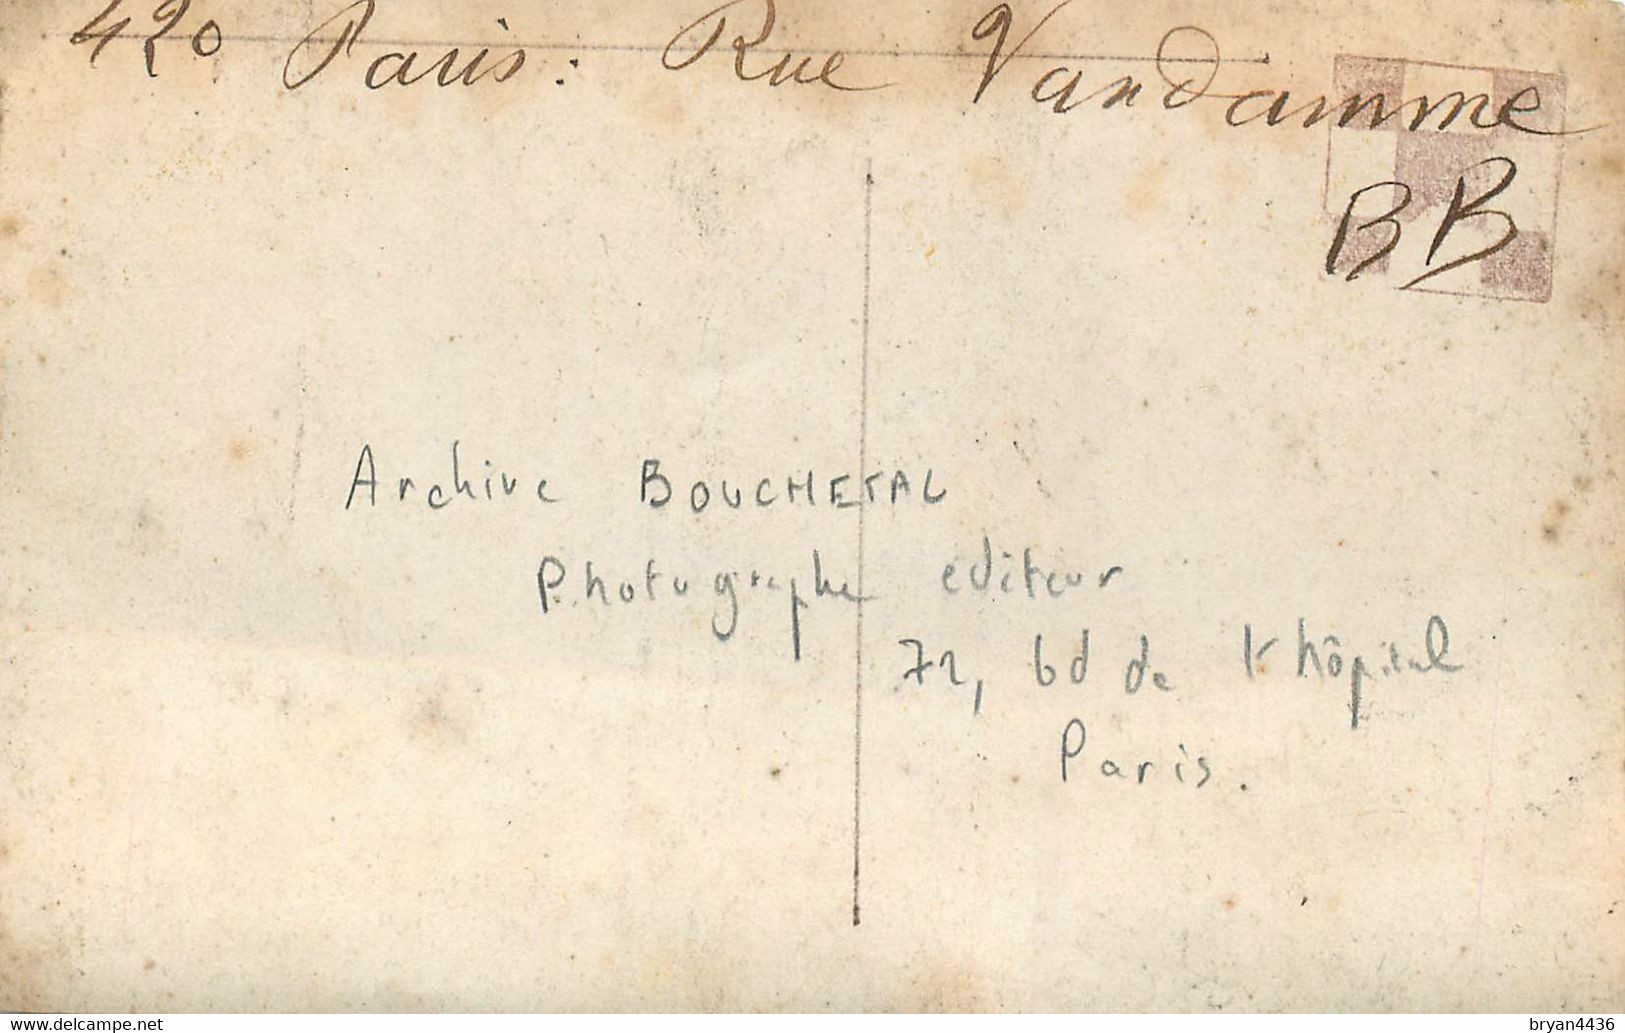 420 Paris : Rue Vandamme
BB
Archive BOUCHETAL
Photographe editeur
72, bd de l'hôpital
Paris.
www.delcampe.net
bryan4436